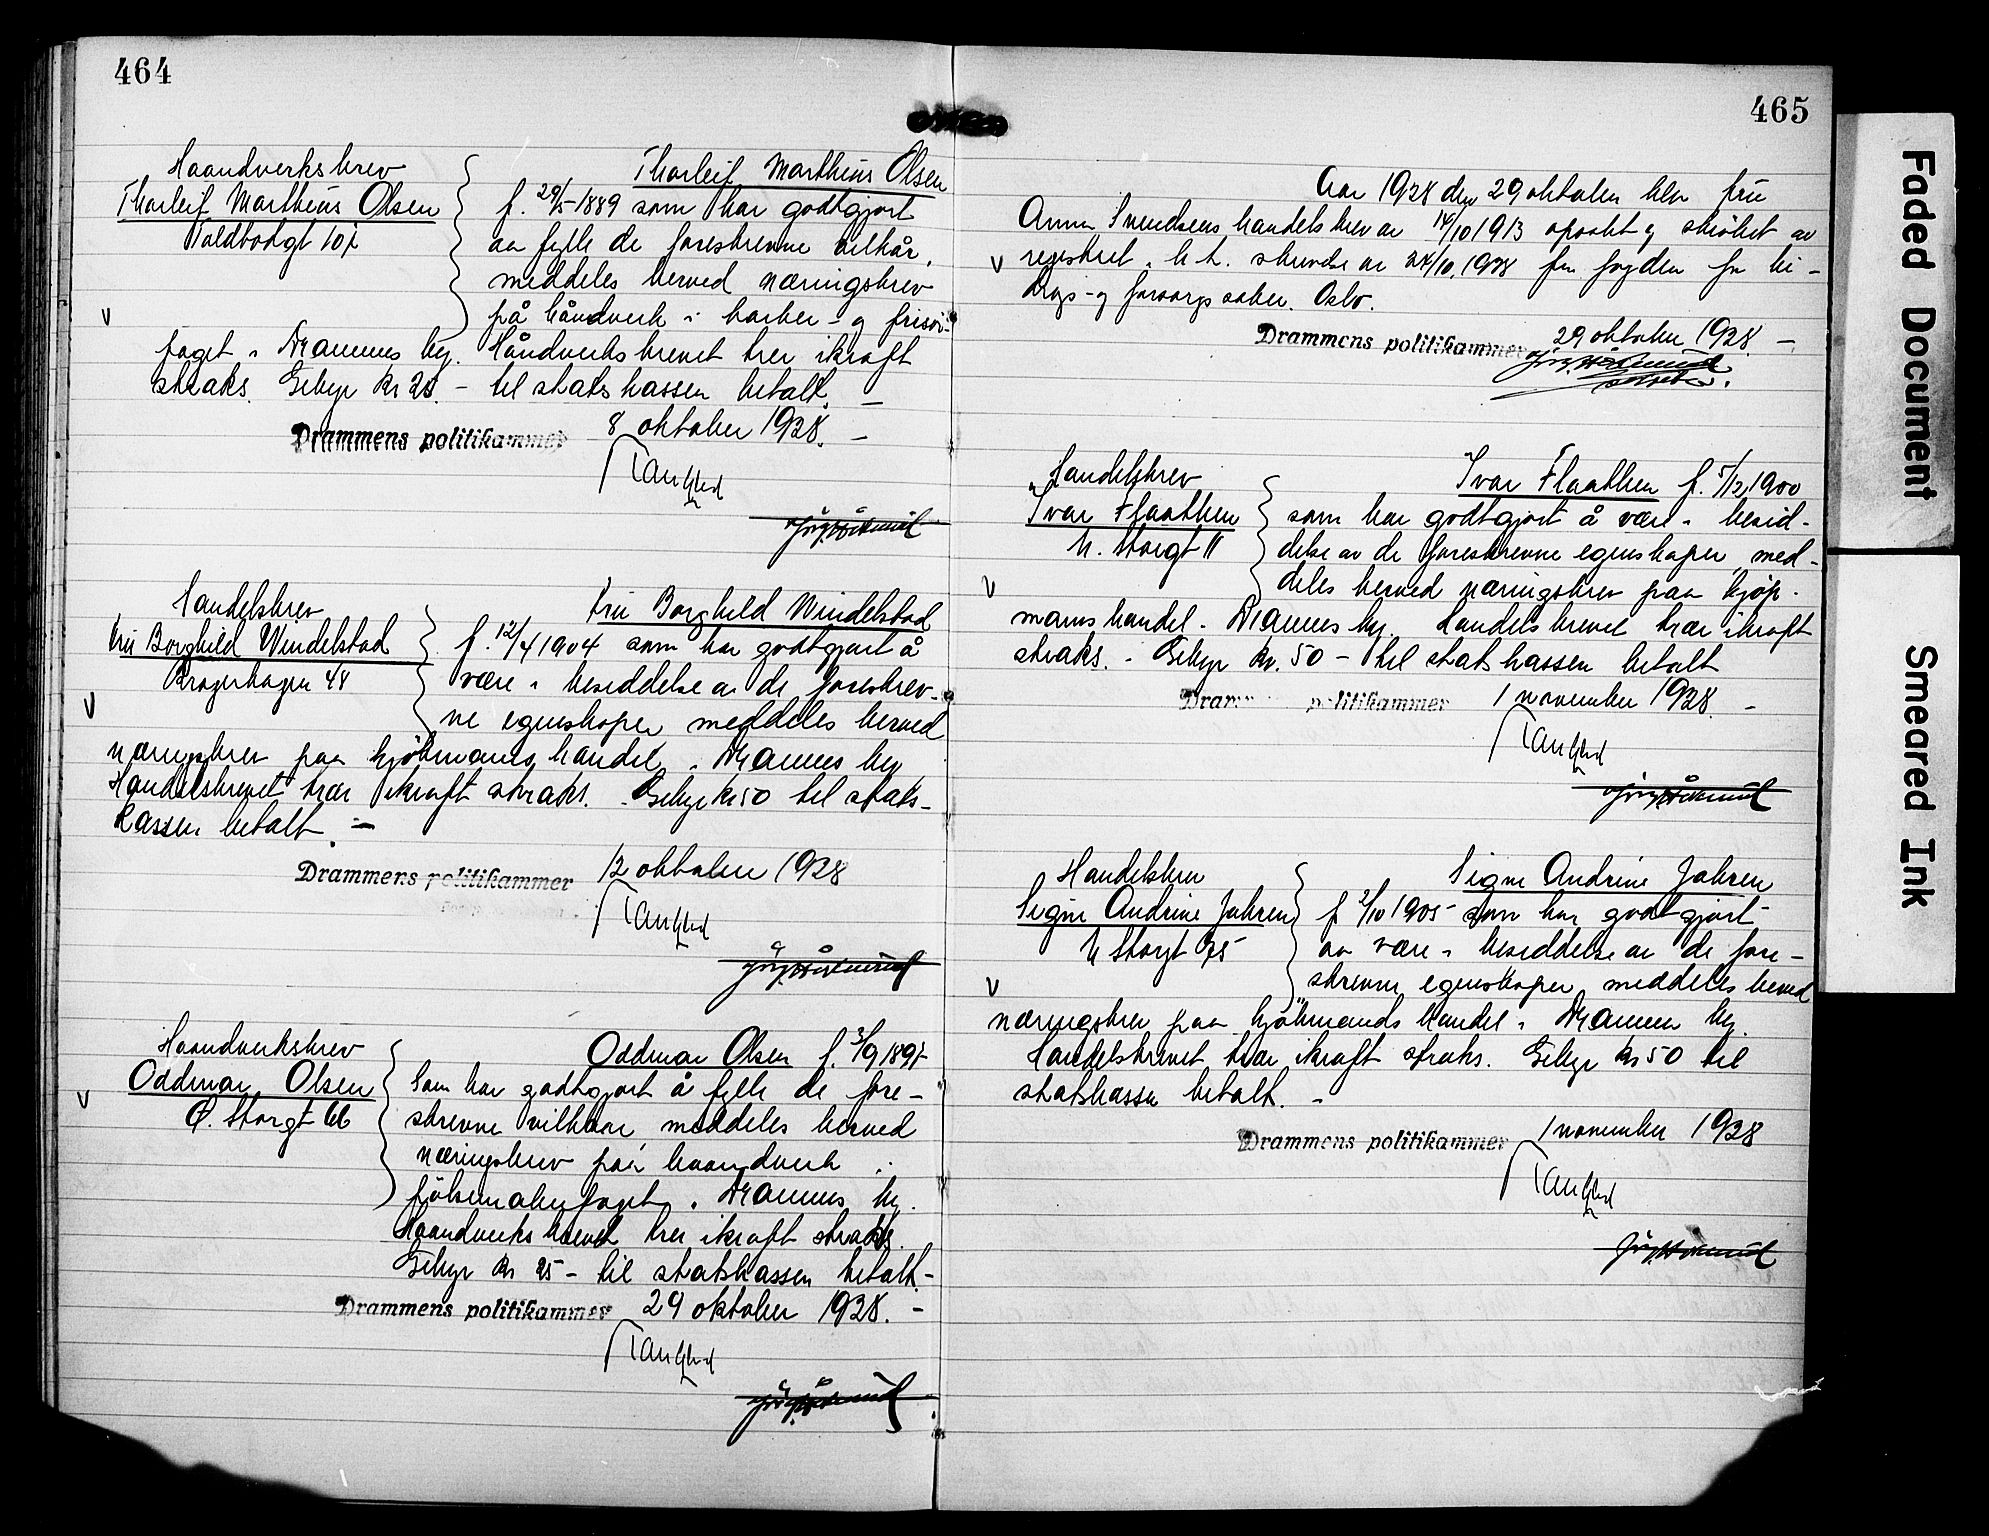 464
Haandverksbrev
Thorleif Marthius Olsen
Toldbodgt 10
Thorleif Marthius Olsen
f. 29/5-1889 som har godtgjort
aa fylle de foreskrevne vilkår,
meddeles herved næringsbrev
på håndverk i barber- og frisør-
faget i Drammens by. Håndverksbrevet trer ikraft
straks. Gebyr kr 25.- til statskassen betalt. -
Drammens politikammer 8 oktober 1928. -
Handelsbrev
Fru Borghild Windelstad
Bragerhagen 48
Fru Borghild Windelstad
f. 12/4 1904 som har godtgjort å
være i besiddelse av de foreskrev-
ne egenskaper meddeles herved
næringsbrev paa kjøbmannshandel i Drammens by
Handelsbrevet trær ikraft straks. Gebyr kr 50 til stats-
kassen betalt. -
Drammens politikammer 12 oktober 1928
Haandverksbrev
Oddmar Olsen
Ø. Storgt 66
Oddmar Olsen f. 3/9 1895
som har godtgjort å fylle de fore-
skrevne vilkaar, meddeles herved
næringsbrev paa haandverk i
pølsemakerfaget i Drammens by.
Haandverksbrevet trer ikraft straks.
Gebyr kr 25 - til statskassen betalt. -
Drammens politikammer 29 oktober 1928. -
465
Aar 1928 den 29 oktober blev fru
Anna Svendsens handelsbrev av 14/10 1913 opsakt og strøket av
registret i h. t. skrivelse av 24/10, 1928 fra fogden for bi-
drags- og forsorgssaker. Oslo.
Drammens politikammer 29 oktober 1928. -
Handelsbrev
Ivar Flaathen
N. Storgt 11
Ivar Flaathen f. 5/12 1900
som har godtgjort å være i besid-
delse av de foreskrevne egenskaper, med-
deles herved næringsbrev paa kjøp-
mannshandel i Drammens by. Handelsbrevet trær ikraft
straks. - Gebyr kr. 50 - til statskassen betalt
Drammens politikammer 1 november 1928. -
Handelsbrev
Signe Andrine Jahren
N Storgt 25
Signe Andrine Jahren
f 2/10 1905 som har godtgjort
aa være i besiddelse av de fore-
skrevne egenskaper meddeles herved
næringsbrev paa kjøbmandshandel i Drammens by.
Handelsbrevet trær ikraft straks. Gebyr kr 50 til
statskassen betalt. -
Drammens politikammer 1 november 1928
Faded Document
Smeared Ink